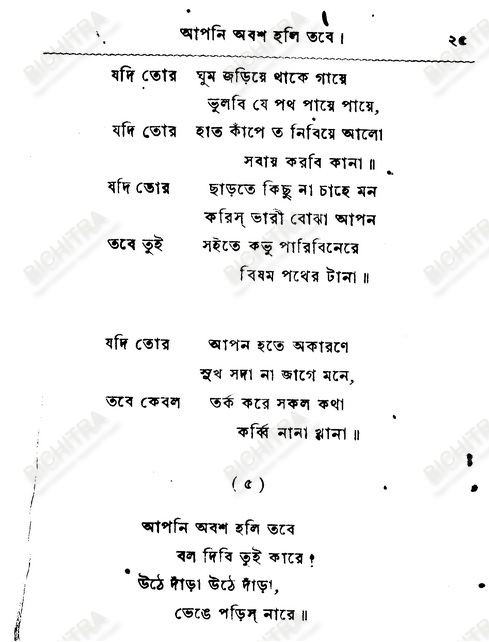 আপনি অবশ হলি তবে। ২৫
যদি তোর ঘুম জড়িয়ে থাকে গায়ে
ভুলবি যে পথ পায়ে পায়ে,
যদি তোর হাত কাঁপে ত নিবিয়ে আলো
সবায় করবি কানা॥
যদি তোর ছাড়তে কিছু না চাহে মন
করিস্ ভারী বোঝা আপন
তবে তুই সইতে কভু পারিবিনেরে
বিষম পথের টানা॥
যদি তোর আপন হতে অকারণে
সুখ সদা না জাগে মনে,
তবে কেবল তর্ক করে সকল কথা
কর্ব্বি নানা খানা॥
(৫)
আপনি অবশ হলি তবে
বল দিবি তুই কারে!
উঠে দাঁড়া উঠে দাঁড়া,
ভেঙে পড়িস্ নারে॥
BICHITRA